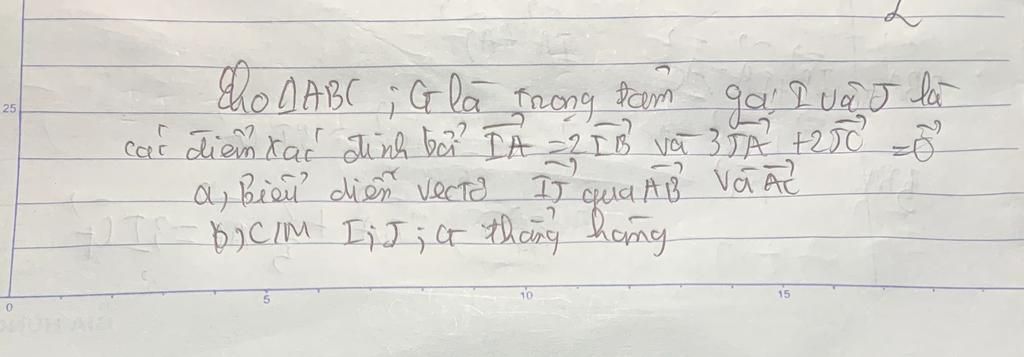 2
Cho ΔABC ; G là trọng tâm gọi I và J là
các điểm xác định bởi $\overrightarrow{IA}$ = 2$\overrightarrow{IB}$ và 3$\overrightarrow{JA}$ + 2$\overrightarrow{JC}$ = $\vec{0}$
a, Biểu diễn vectơ $\overrightarrow{IJ}$ qua $\overrightarrow{AB}$ và $\overrightarrow{AC}$
b, C/M I; J; G thẳng hàng
25
0 5 10 15